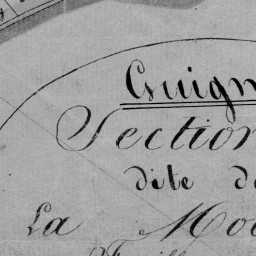 Guign
Section
dite d
La Mo